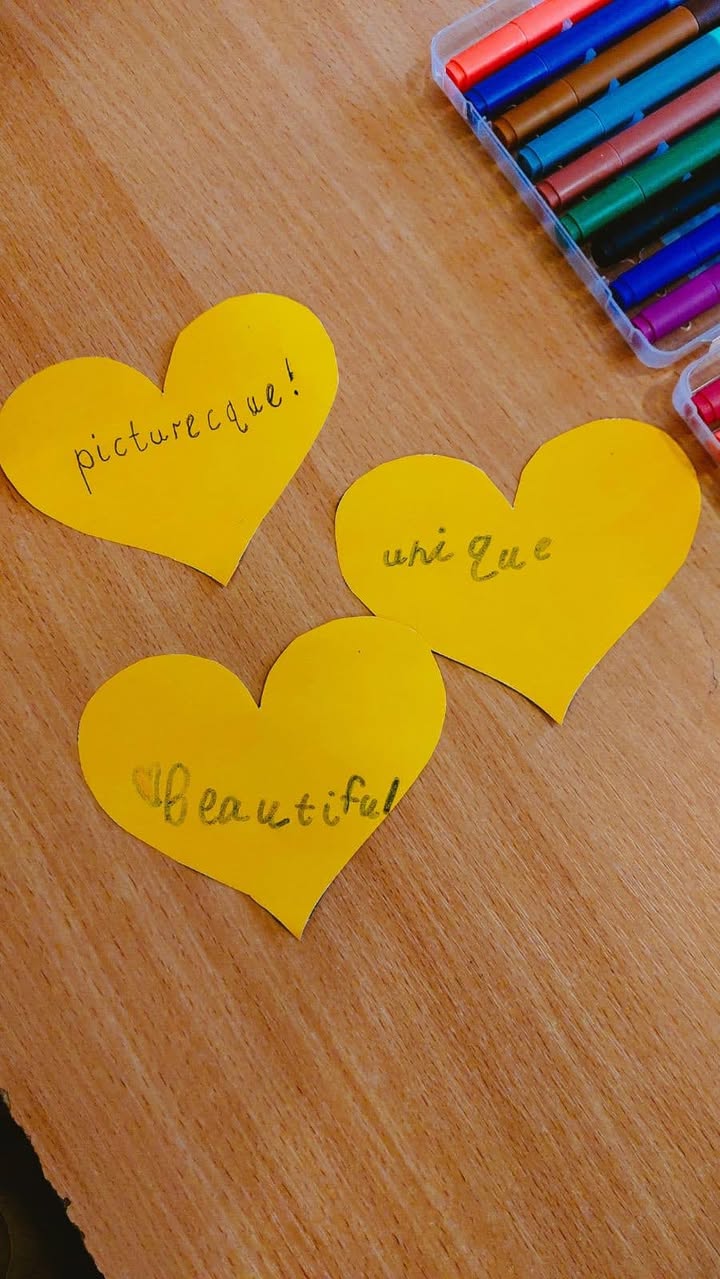 picturecque!
unique
Beautiful